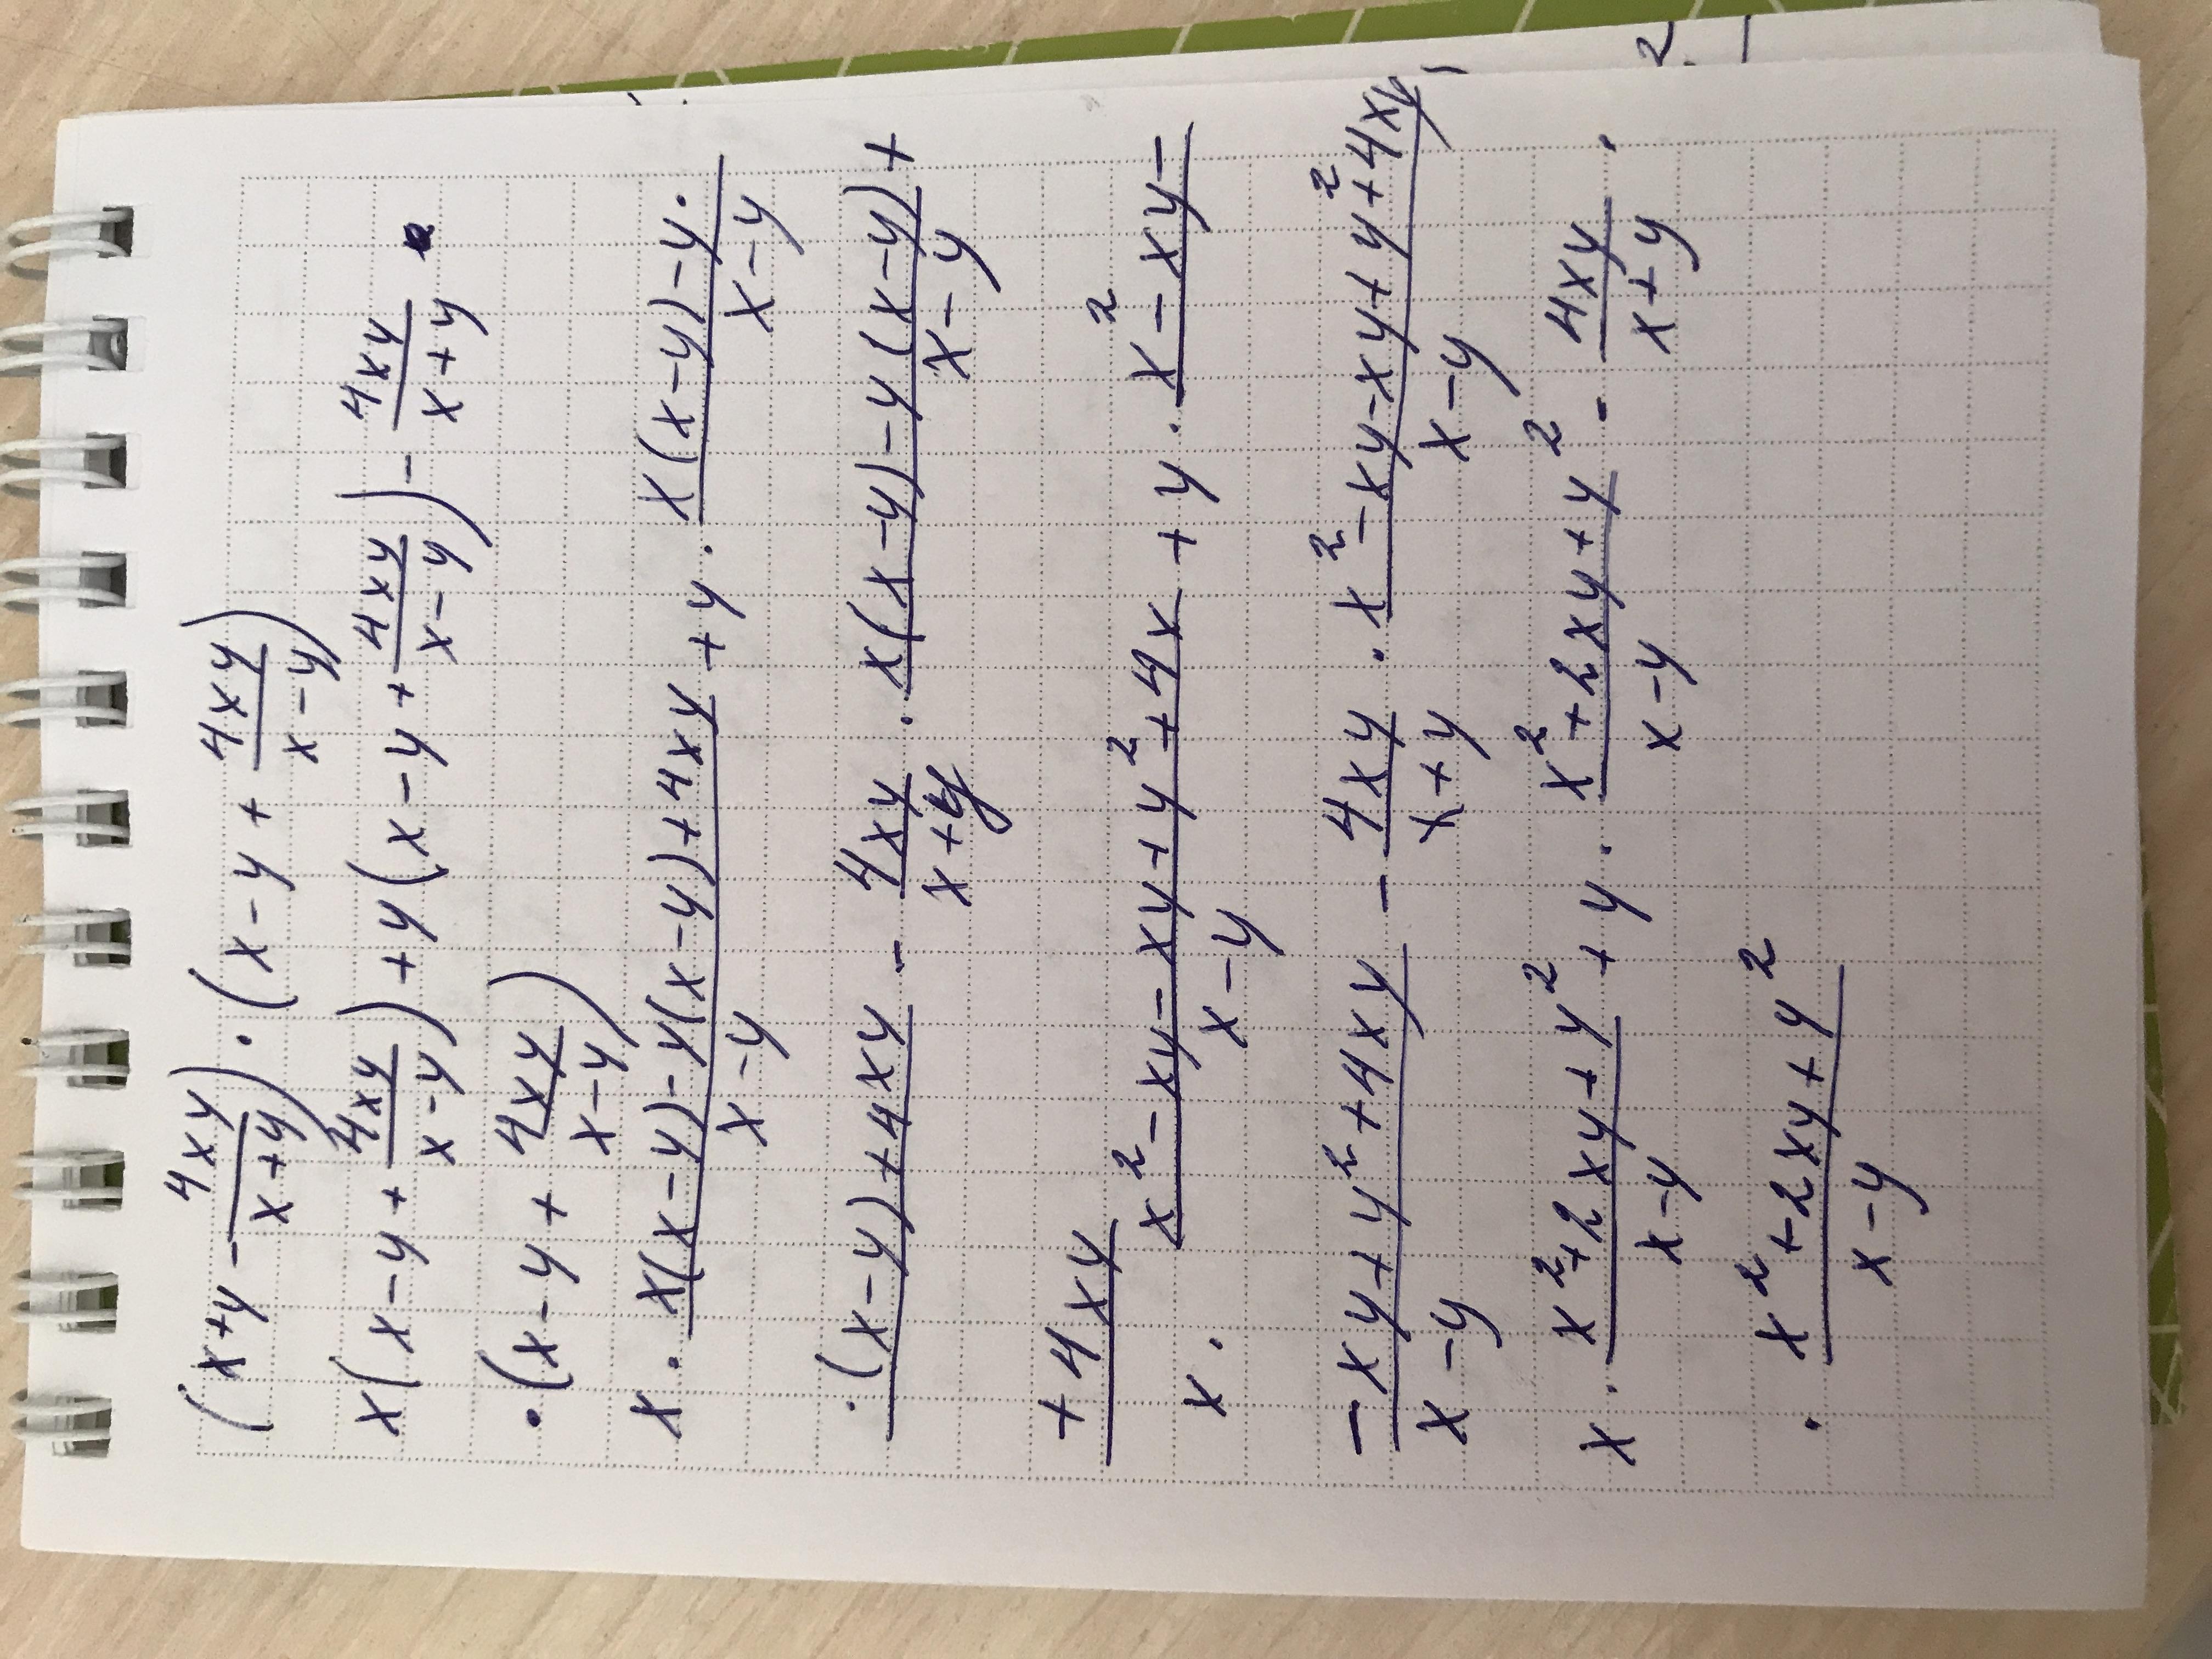 (x+y - 4xy/(x+y)) · (x-y + 4xy/(x-y))
x(x-y + 4xy/(x-y)) + y(x-y + 4xy/(x-y)) - 4xy/(x+y) ·
· (x-y + 4xy/(x-y))
x · (x(x-y)-y(x-y)+4xy)/(x-y) + y · (x(x-y)-y·)/(x-y)
·(x-y)+4xy - 4xy/(x+y) · (x(x-y)-y(x-y)+)/(x-y)
+4xy
x · (x²-xy-xy+y²+4x)/(x-y) + y · x²-xy-
(-xy+y²+4xy)/(x-y) - 4xy/(x+y) · (x²-xy-xy+y²+4xy)/(x-y)
x · (x²+2xy+y²)/(x-y) + y · (x²+2xy+y²)/(x-y) - 4xy/(x+y) ·
· (x²+2xy+y²)/(x-y)